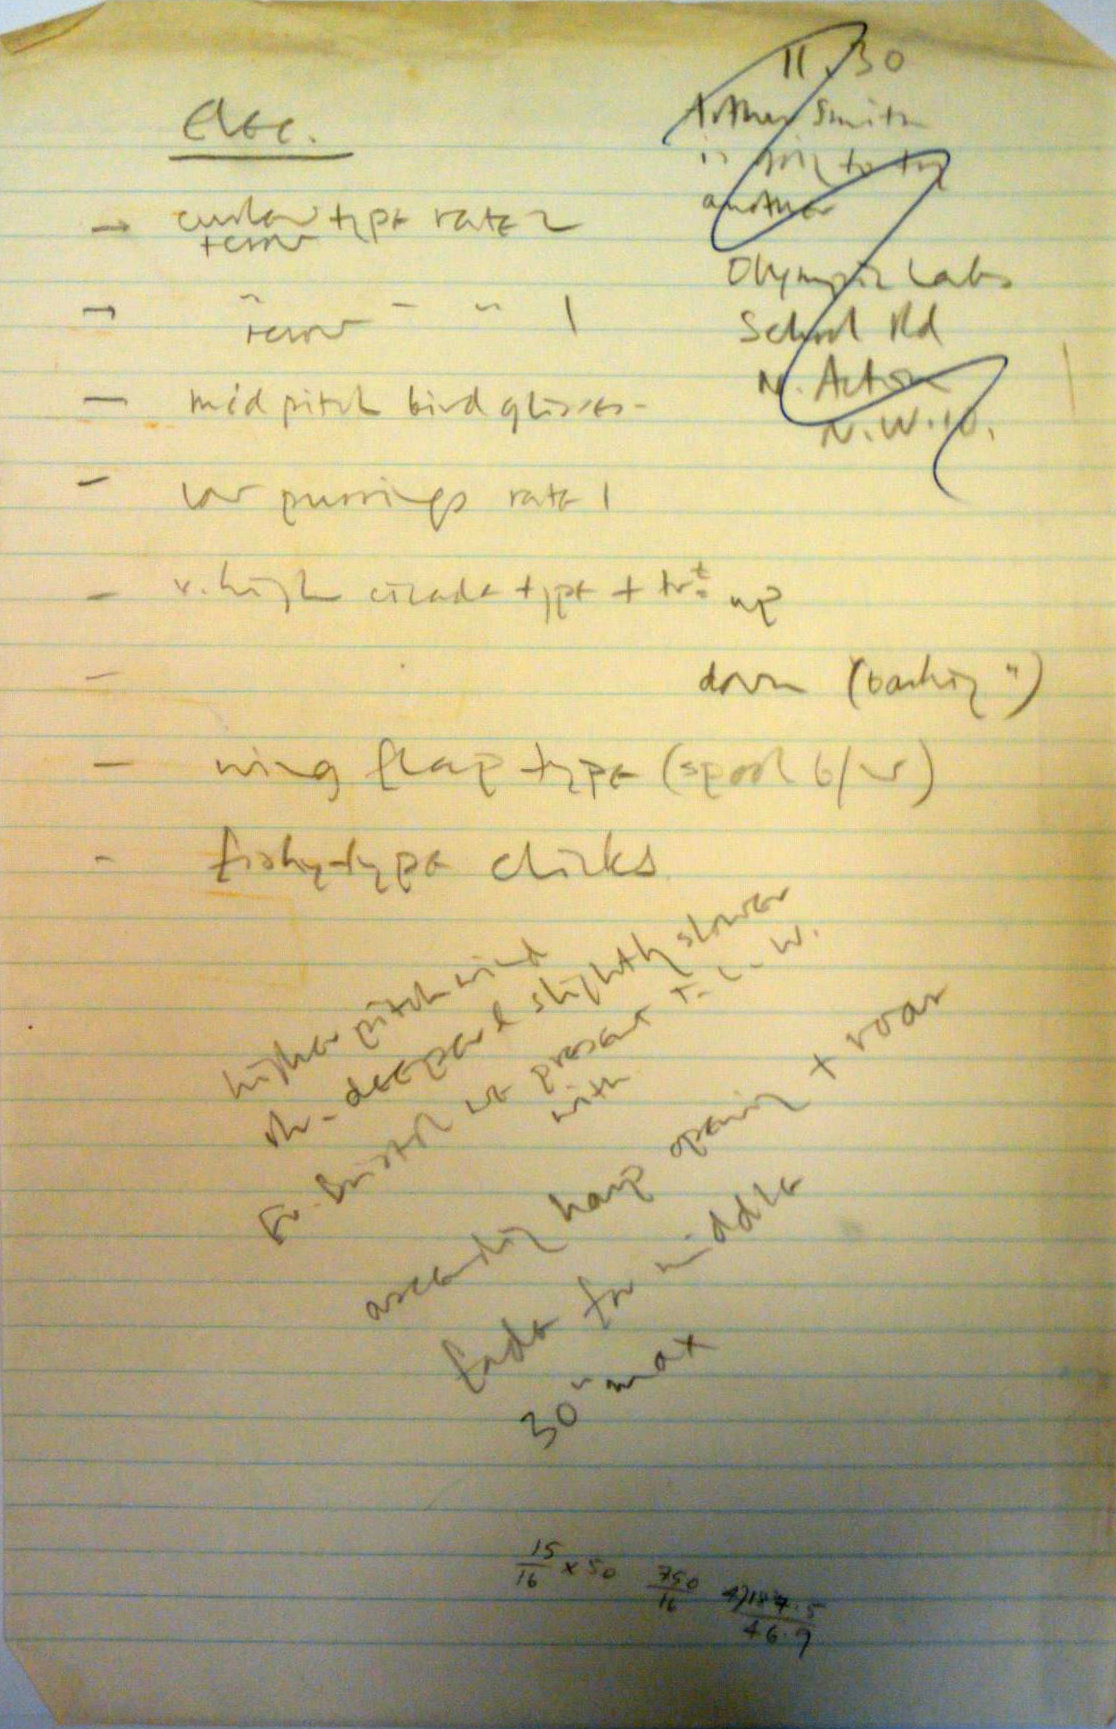 11.30
Arthur Smith
is going to try
another
Olympic Labs
School Rd
N. Acton
N.W.10.
Elec.
→ curlew type rate 2
tenor
→ " - " 1
tenor
— mid pitch bird glisses-
- low purrings rate 1
- v. high cicada type + tr<sup>t</sup> up
- down (barking ")
- wing flap type (spool b/w)
- fishy-type clicks
higher pitch wind
deeper & slightly slower
we present T.C.W.
with
ascending harp opening + roar
fade for middle
30" max
15/16 x 50 750/16 4)187.5
46.9